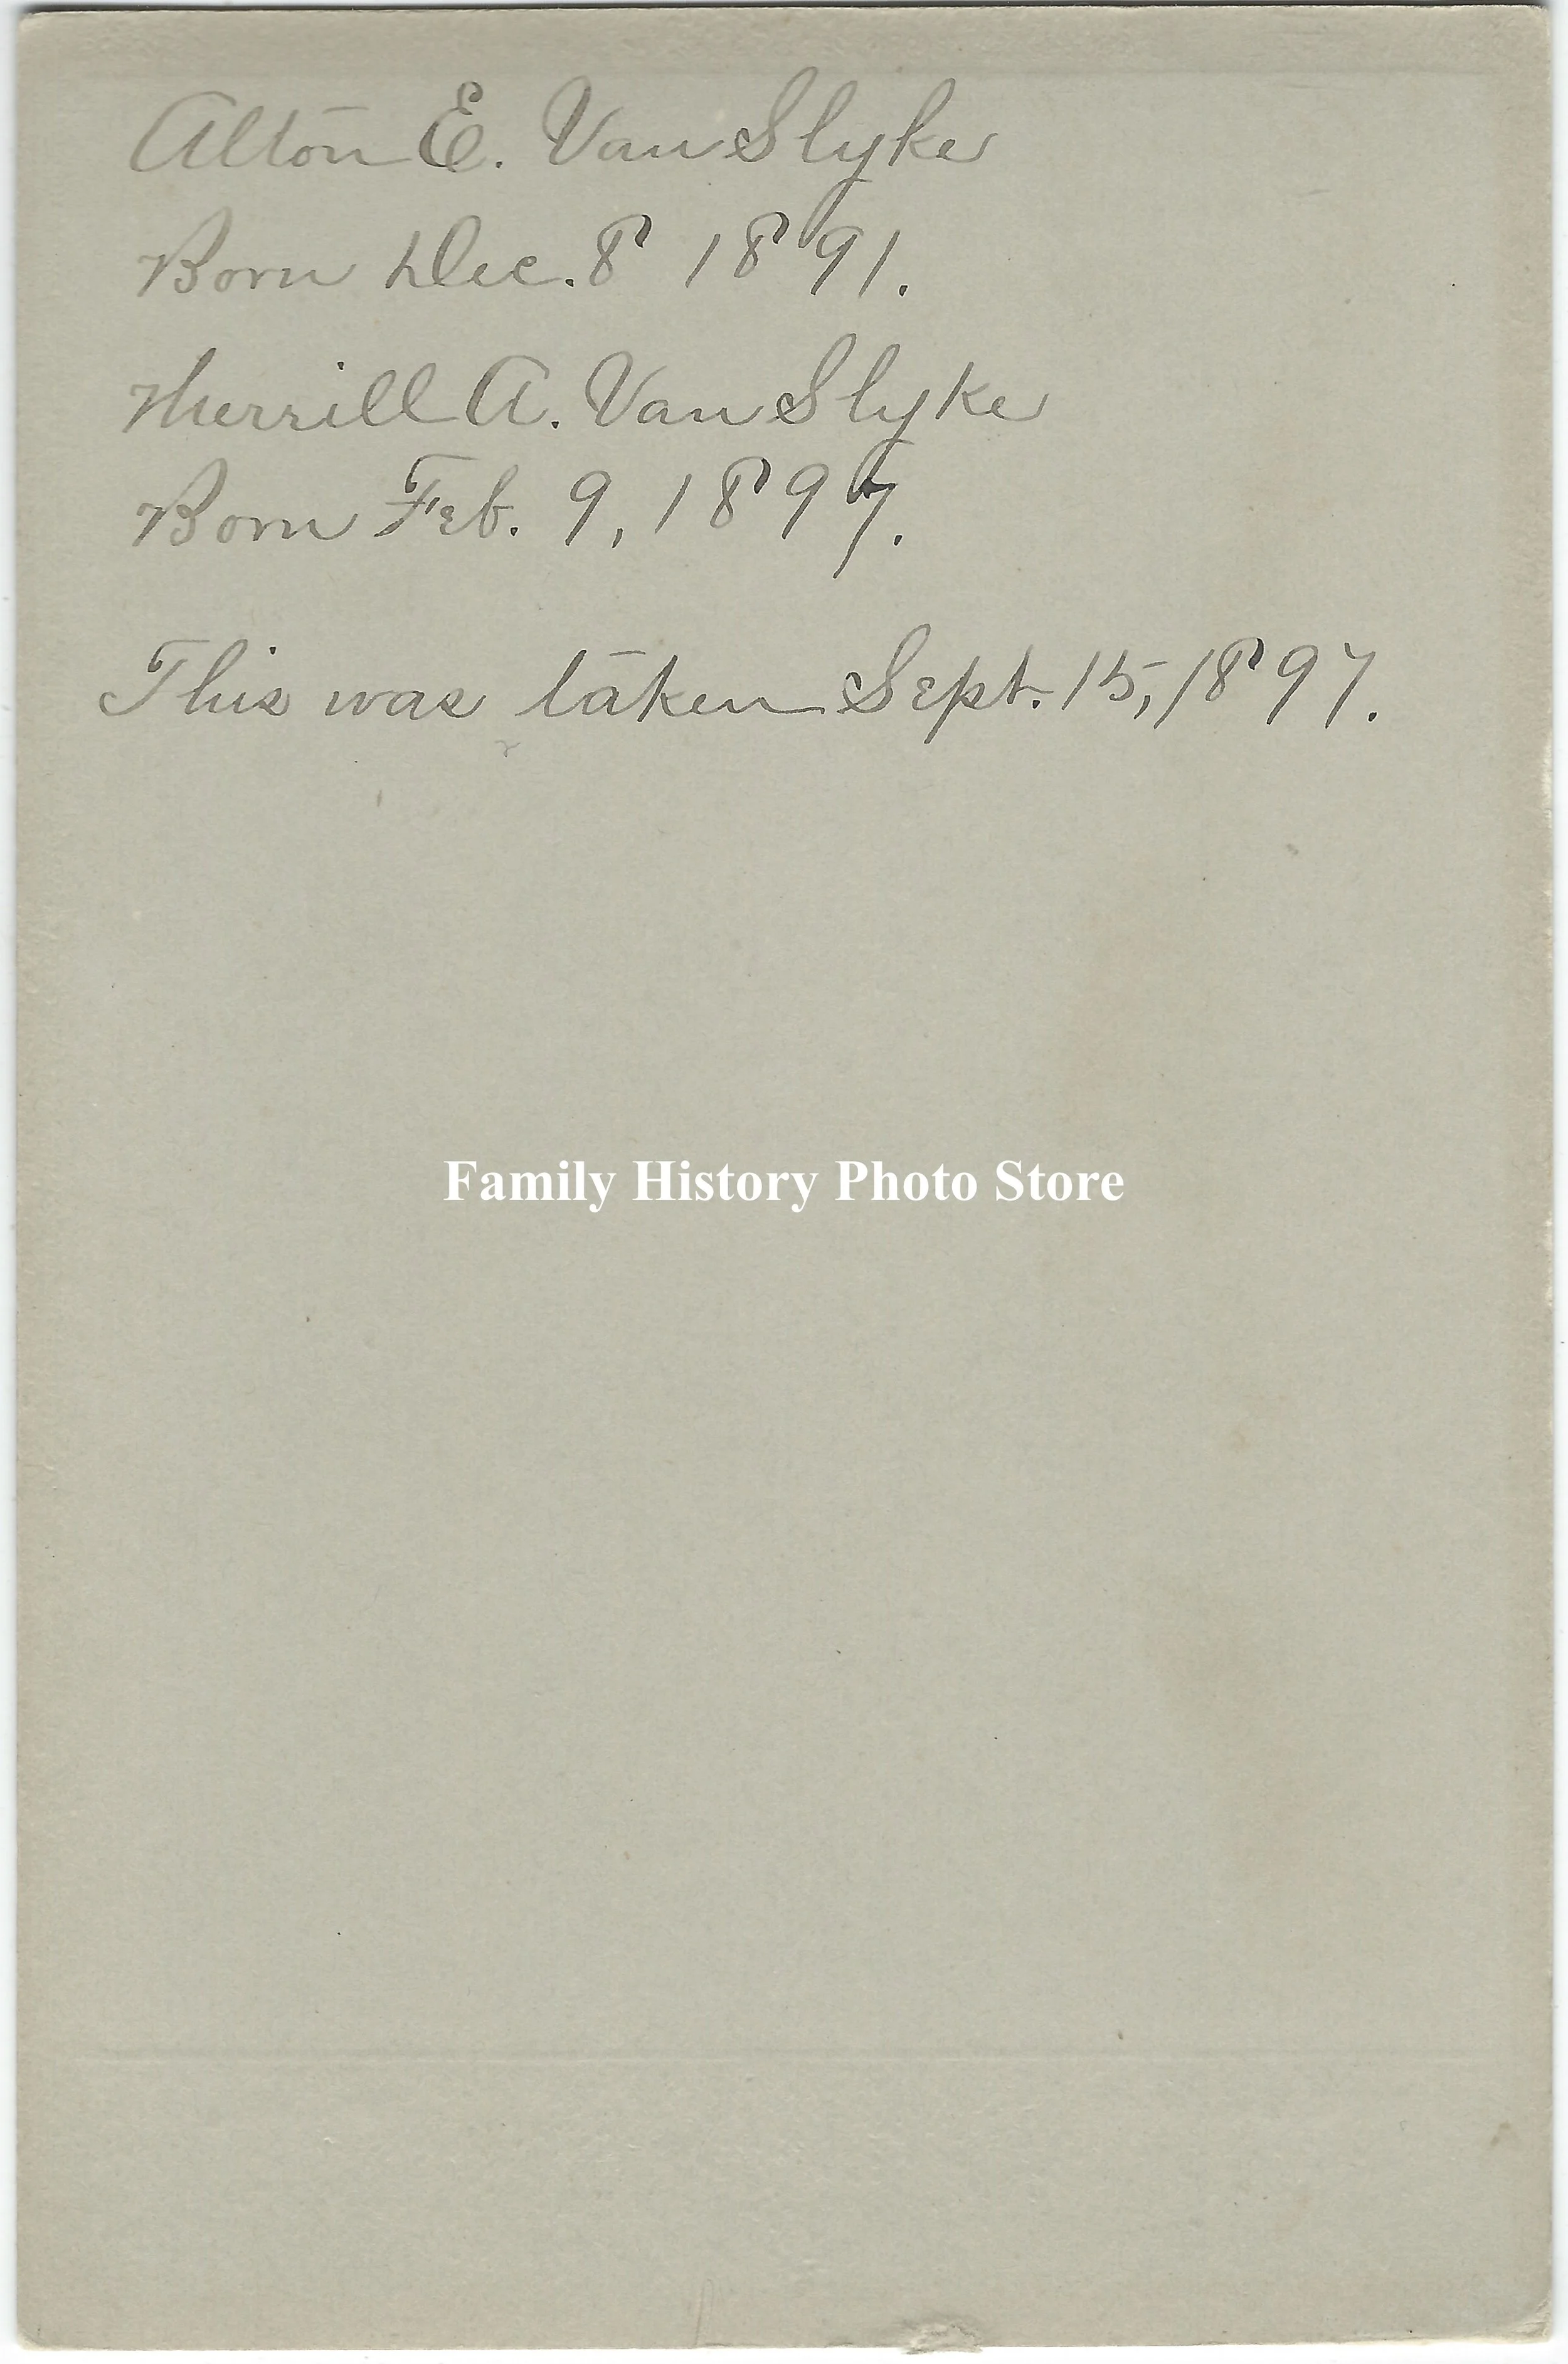 Alton E. Van Slyke
Born Dec. 8 1891.
Merrill A. Van Slyke
Born Feb. 9, 1897.
This was taken Sept. 15, 1897.
Family History Photo Store